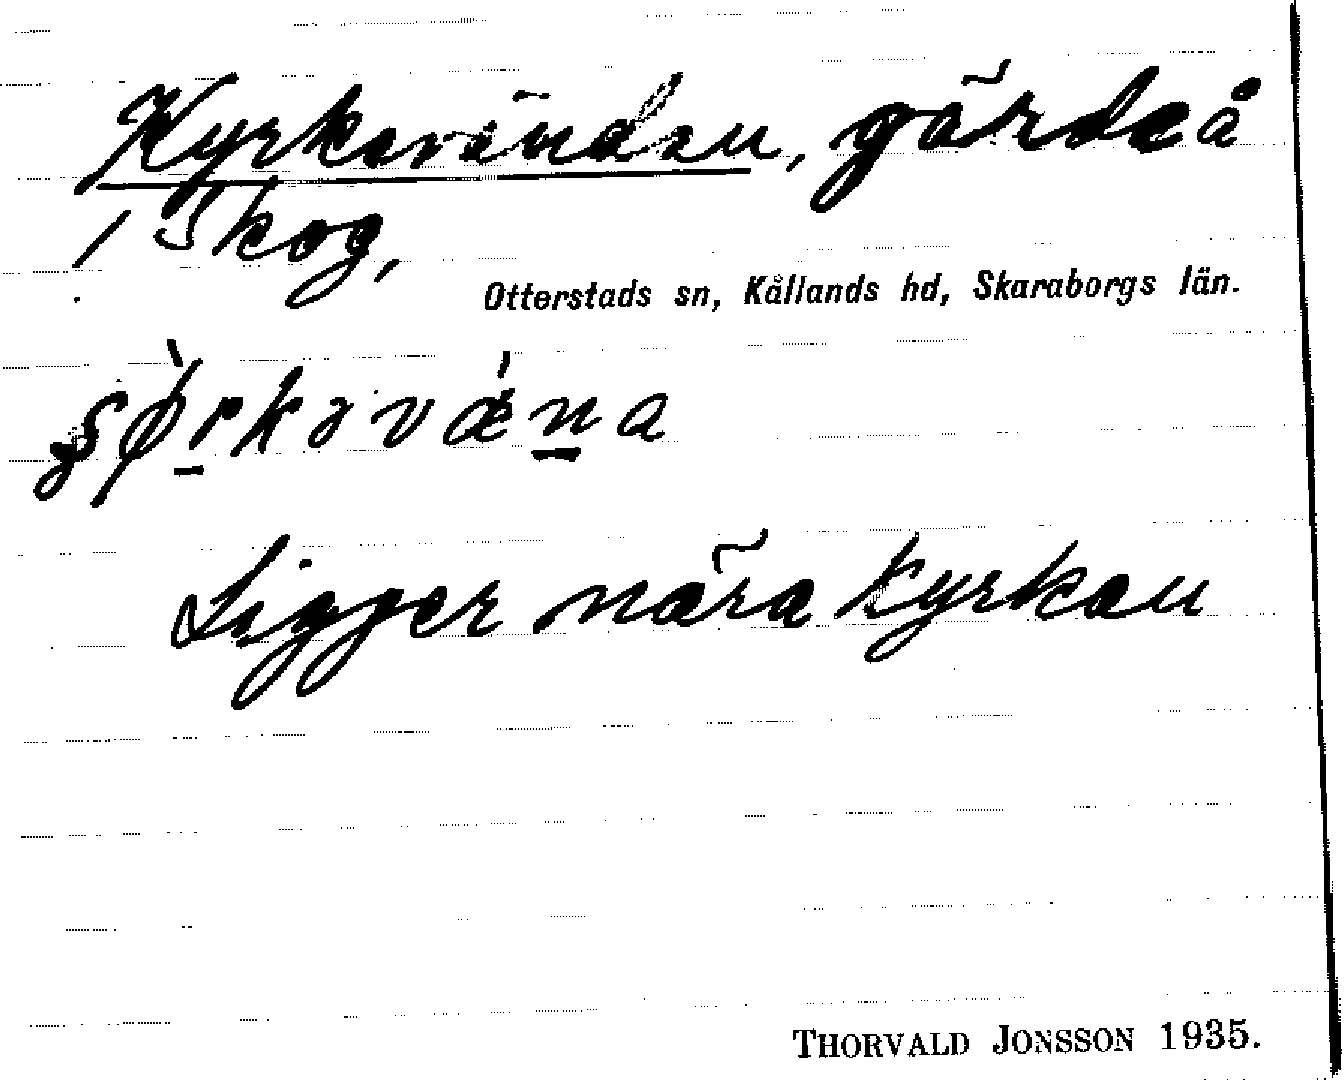 Kyrkevänden, gärde å
/ Skog,
Otterstads sn, Kållands hd, Skaraborgs län.
Ligger nära kyrkan
THORVALD JONSSON 1935.